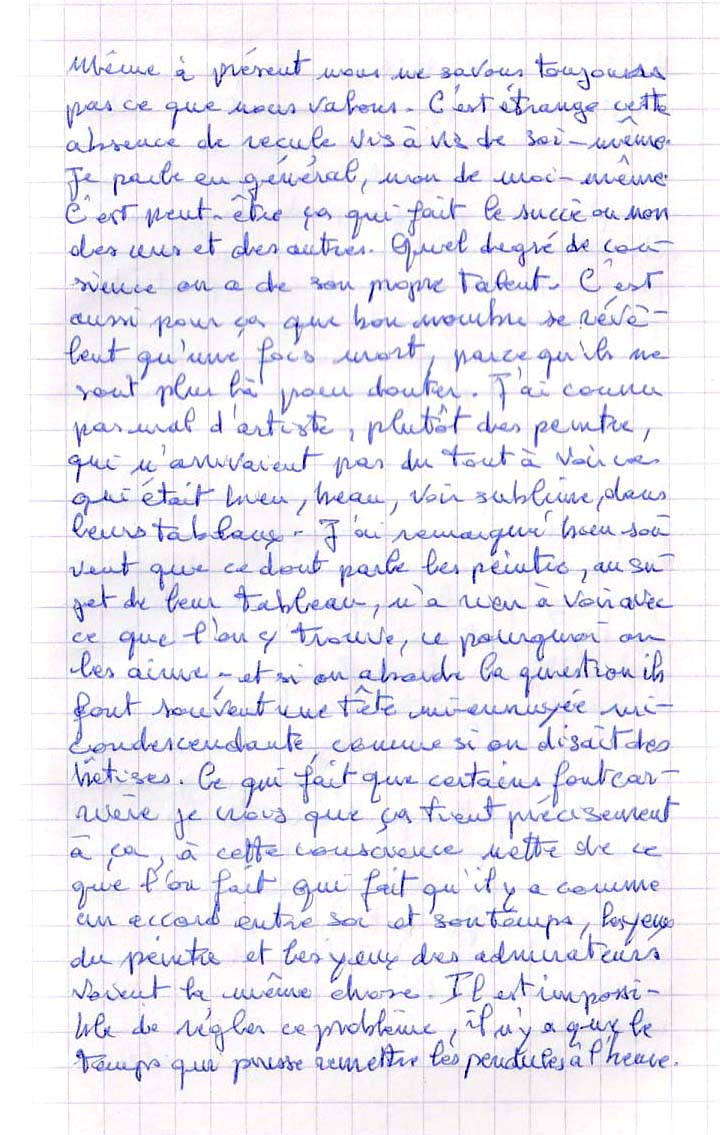 Même à présent nous ne savons toujours
pas ce que nous valons. C'est étrange cette
absence de recule vis à vis de soi-même.
Je parle en général, non de moi-même.
C'est peut-être ça qui fait le succè ou non
des uns et des autres. Quel degré de con-
sience on a de son propre talent. C'est
aussi pour ça que bon nombre se révè-
lent qu'une fois mort, parce qu'ils ne
sont plus là pour douter. J'ai connu
pas mal d'artiste, plutôt des peintre,
qui n'arrivaient pas du tout à voir ce
qui était bien, beau, voir sublime, dans
leurs tableaux. J'ai remarqué bien sou-
vent que ce dont parle les peintre, au su-
jet de leur tableau, n'a rien à voir avec
ce que l'on y trouve, ce pourquoi on
les aime - et si on aborde la question ils
font souvent une tête mi-ennuyée mi-
condescendante, comme si on disait des
bêtises. Ce qui fait que certains font car-
rière je crois que ça tient précisément
à ça, à cette conscience nette de ce
que l'on fait qui fait qu'il y a comme
un accord entre soi et son temps, les yeux
du peintre et les yeux des admirateurs
voient la même chose. Il est impossi-
ble de régler ce problème, il n'y a que le
temps qui puisse remettre les pendules à l'heure.